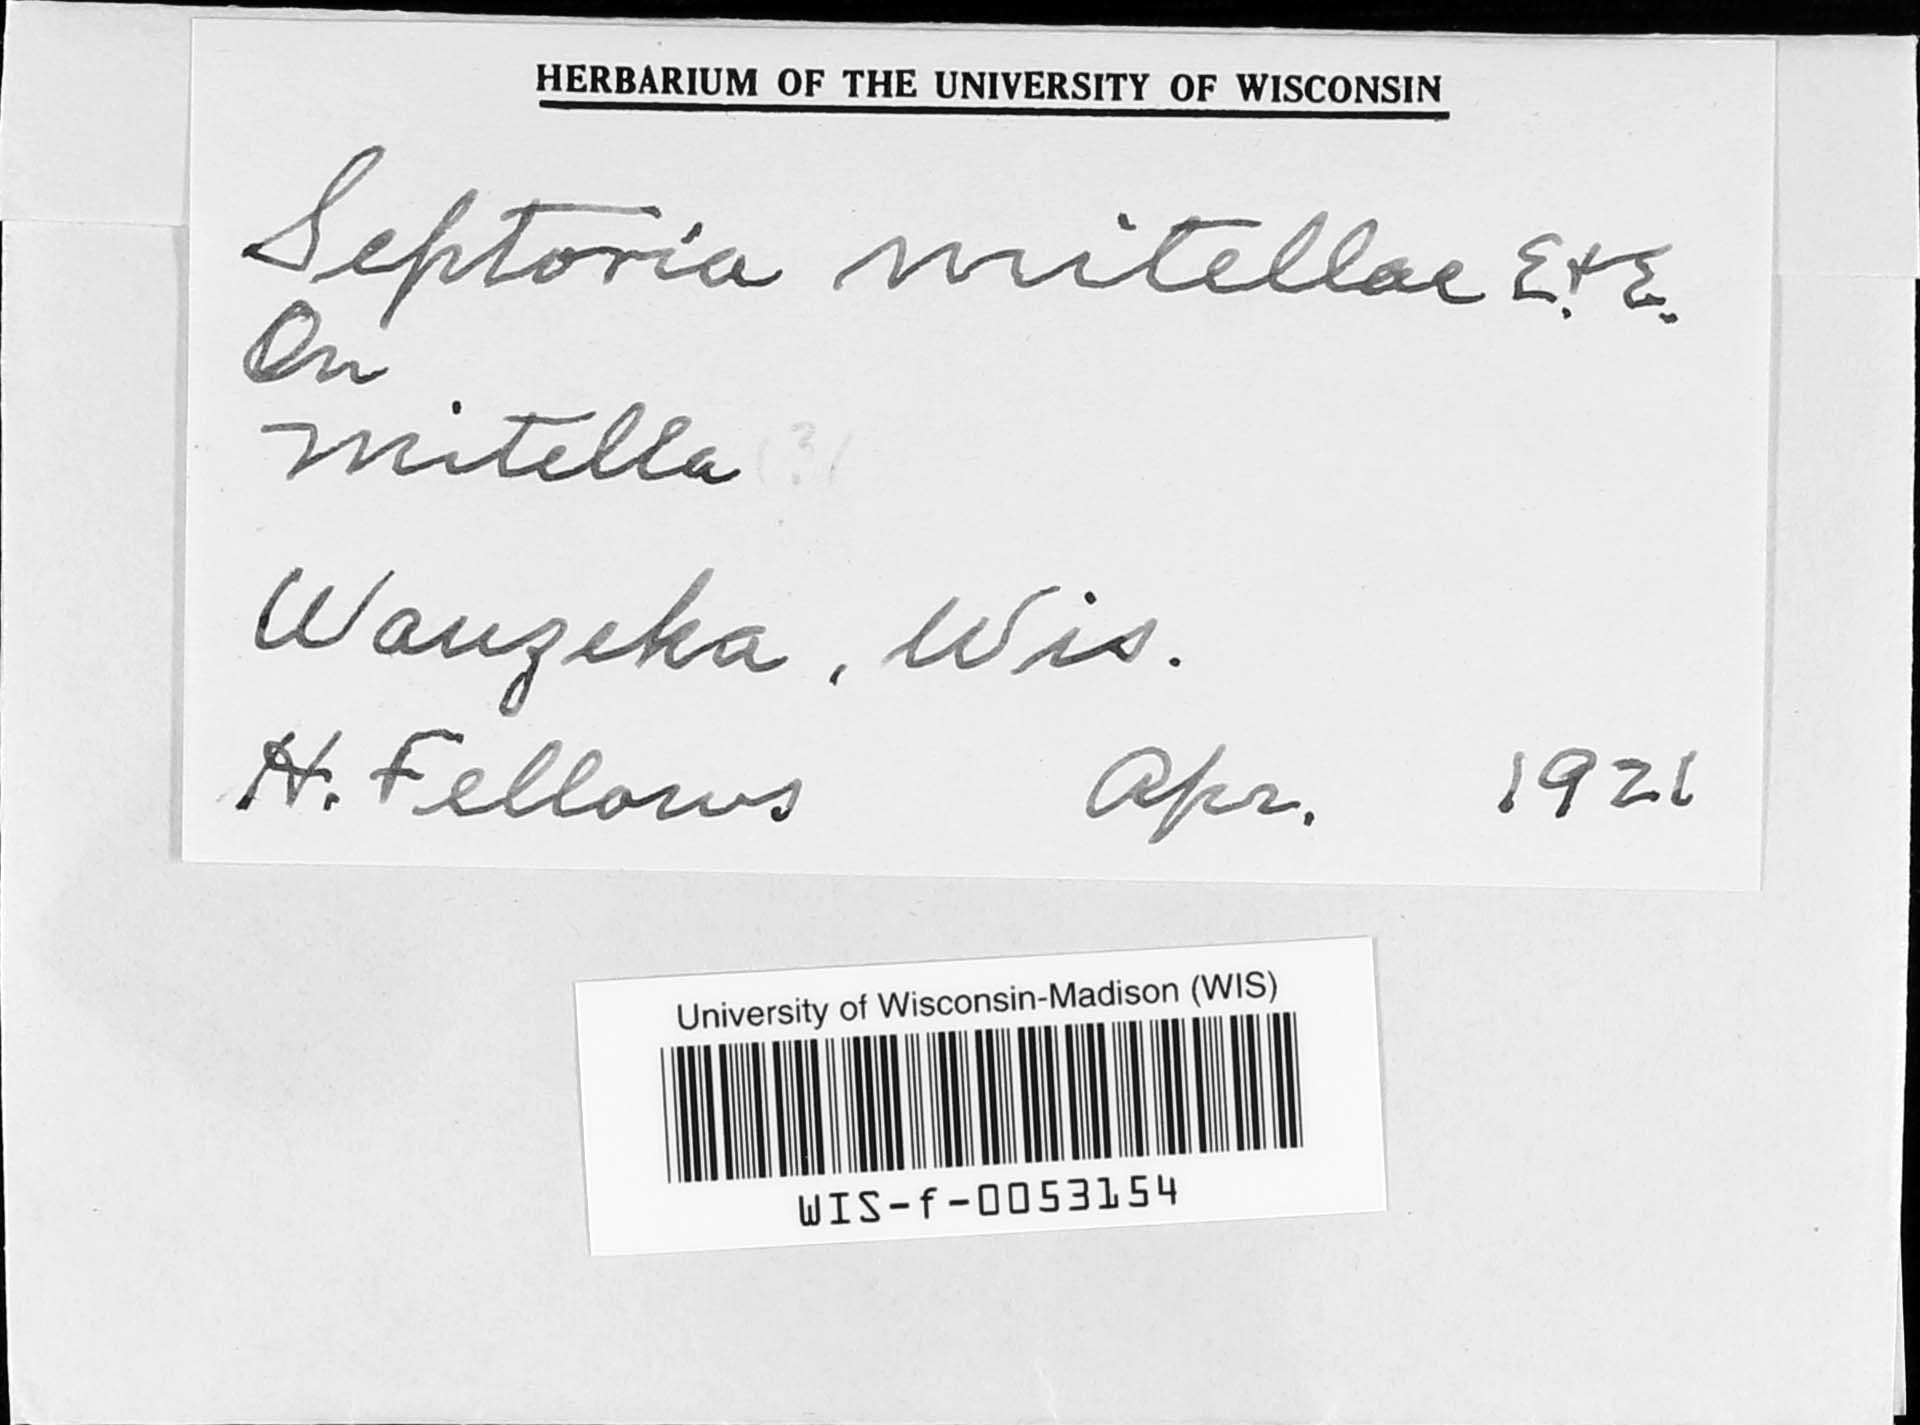 HERBARIUM OF THE UNIVERSITY OF WISCONSIN
Septoria mitellae E. & E.
On
Mitella (?)
Wauzeka, Wis.
H. Fellows Apr. 1921
University of Wisconsin-Madison (WIS)
WIS-f-0053154